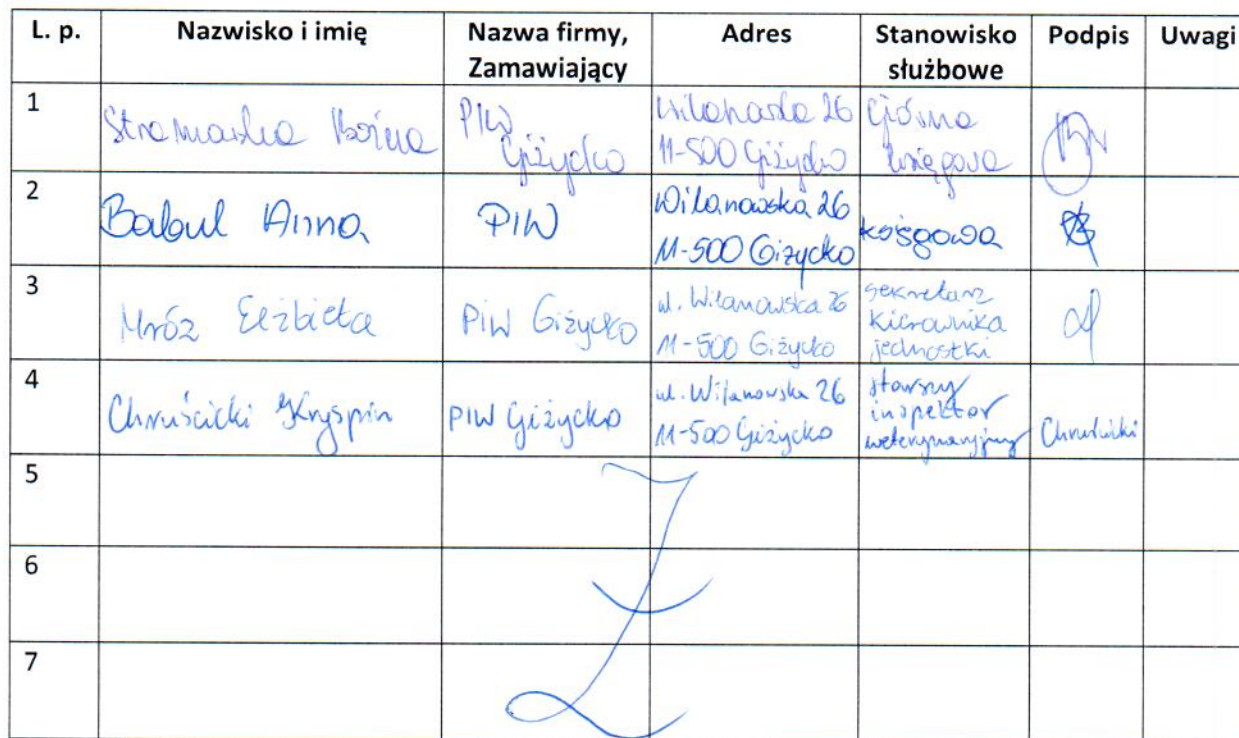 L. p. Nazwisko i imię Nazwa firmy, Zamawiający Adres Stanowisko służbowe Podpis Uwagi
1 PIW Giżycko 26 11-500 Giżycko Główna księgowa
2 Babul Anna PIW Wilanowska 26 11-500 Giżycko księgowa
3 Mróz Elżbieta PIW Giżycko ul. Wilanowska 26 11-500 Giżycko sekretarz kierownika jednostki
4 Chruścicki Kryspin PIW Giżycko ul. Wilanowska 26 11-500 Giżycko starszy inspektor weterynaryjny Chruścicki
5
6
7